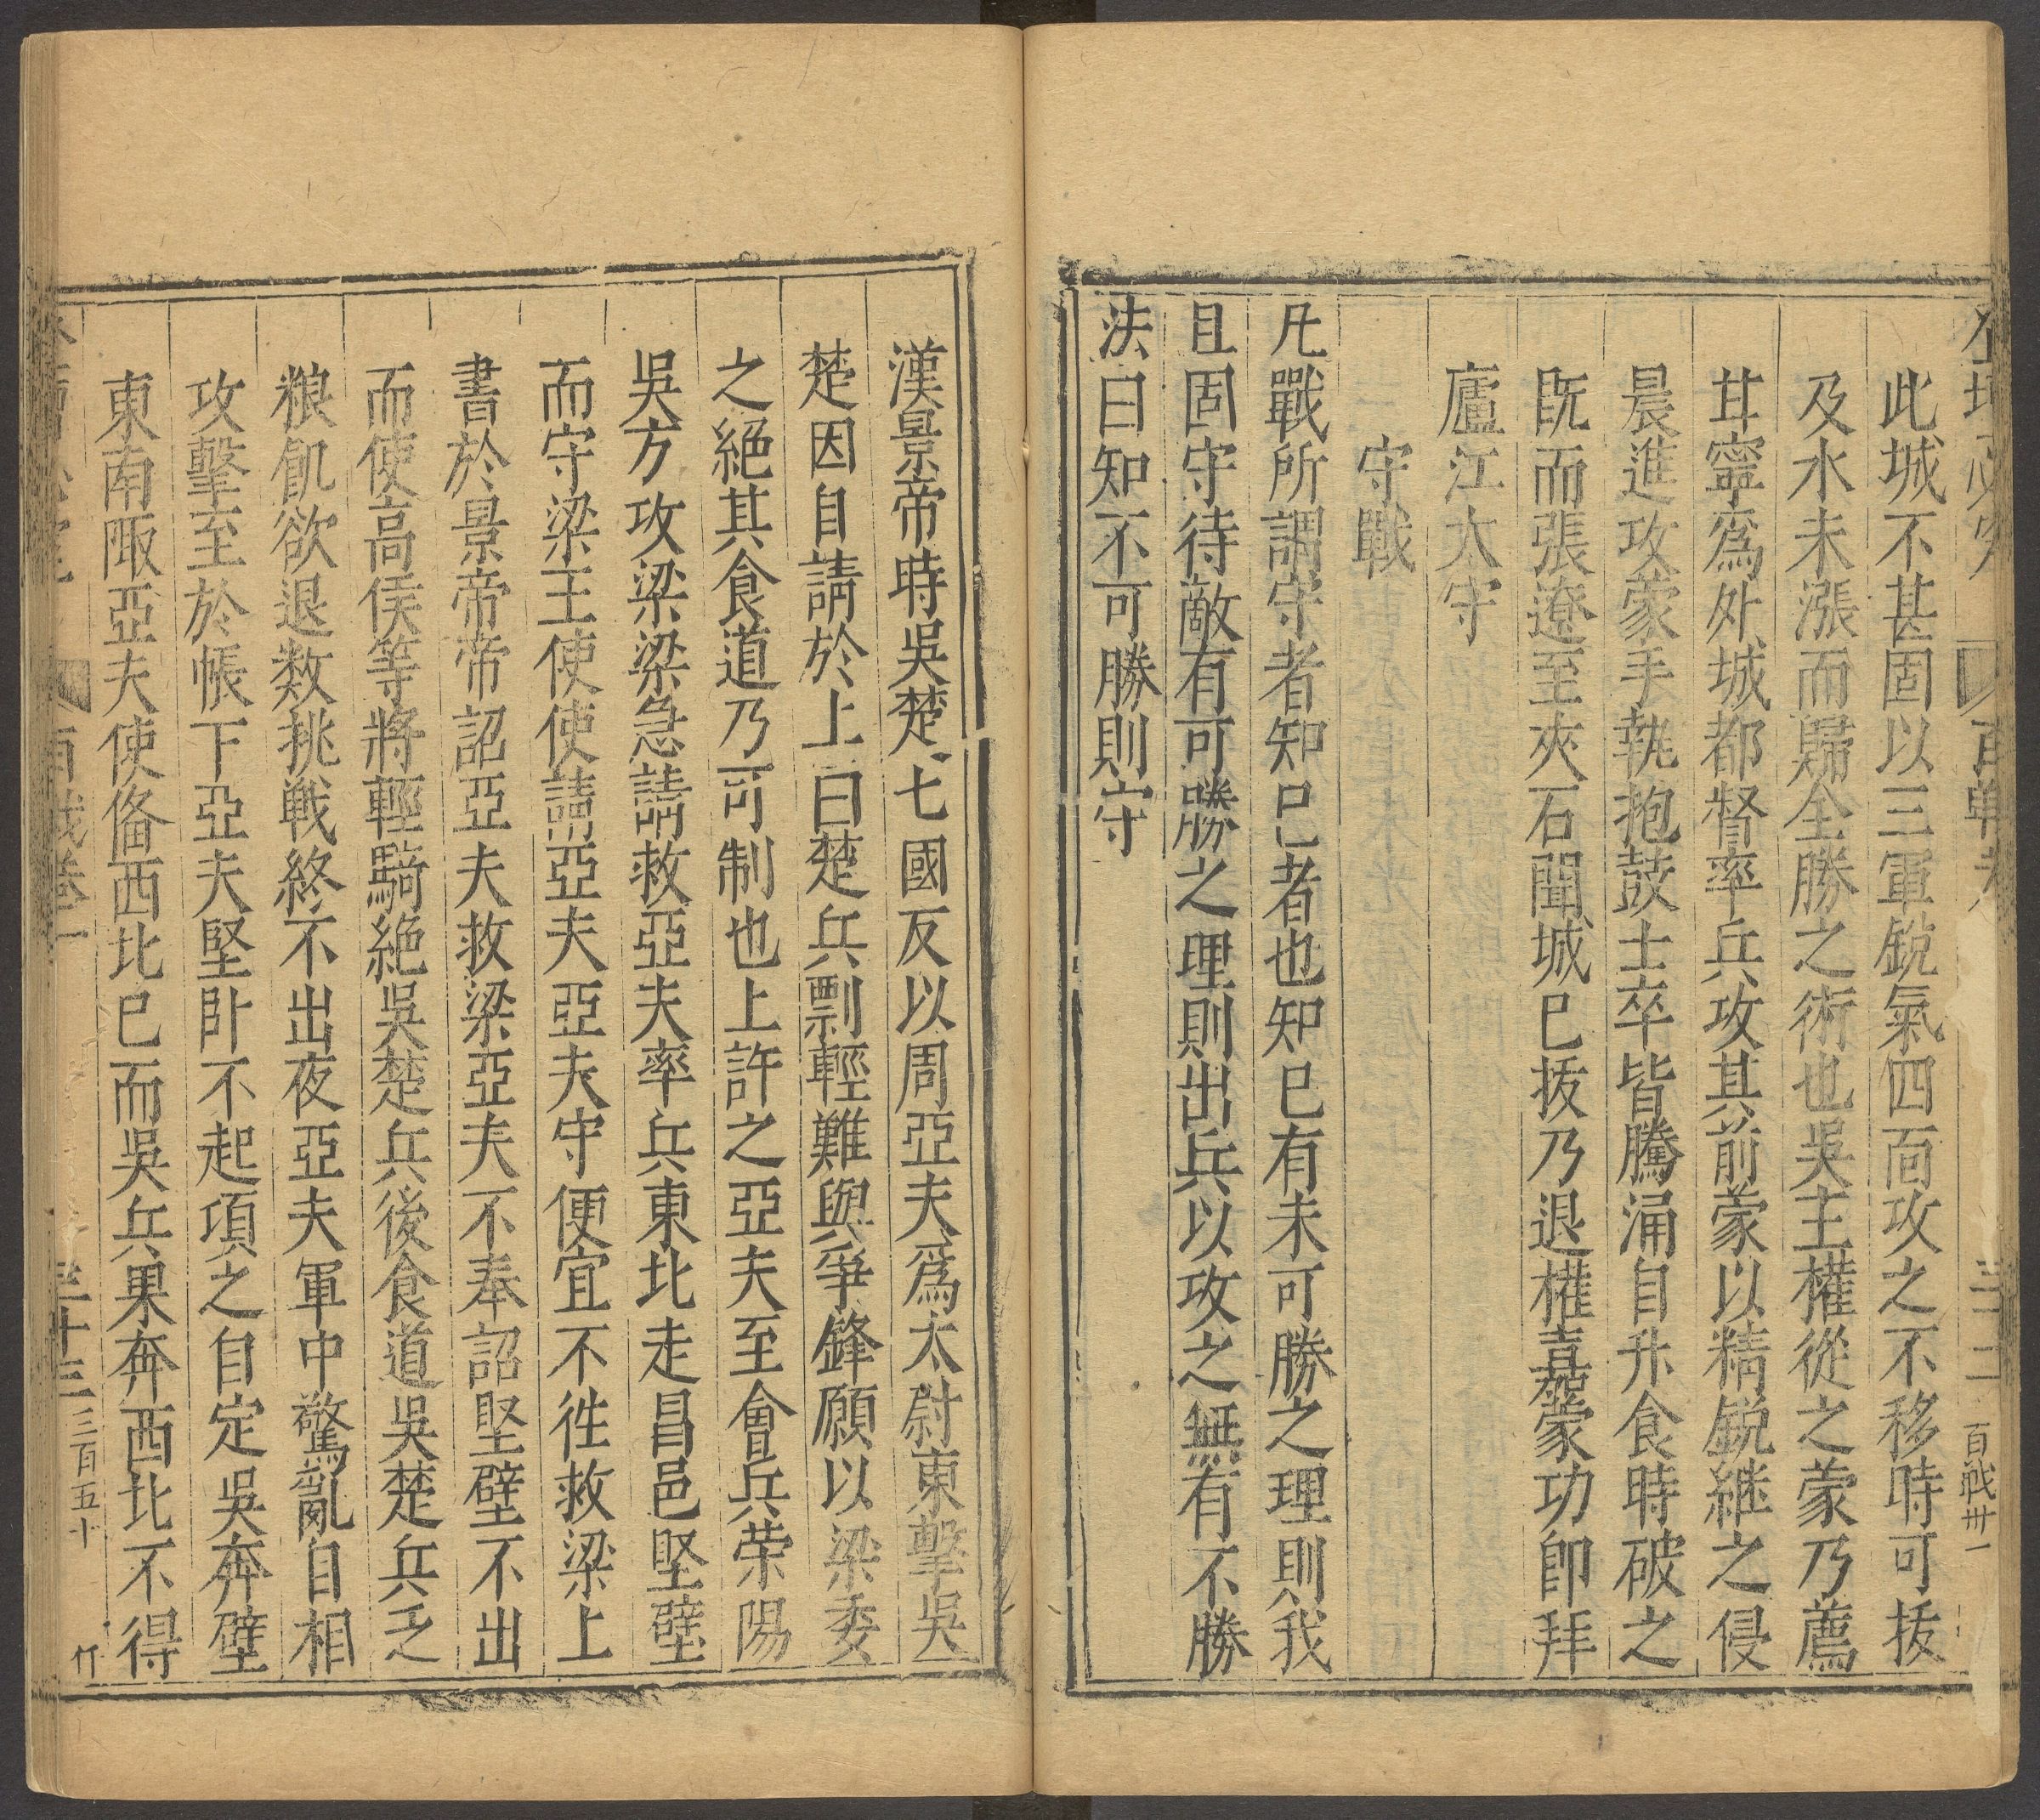 此城不甚固以三軍銳氣四面攻之不移時可拔
及水未漲而歸全勝之術也吳主權從之蒙乃薦
甘寧爲外城都督率兵攻其前蒙以精銳継之侵
晨進攻蒙手執抱鼓士卒皆騰涌自升食時破之
既而張遼至夾石聞城已拔乃退權嘉蒙功即拜
廬江太守
守戰
凡戰所謂守者知己者也知己有未可勝之理則我
且固守待敵有可勝之理則出兵以攻之無有不勝
法曰知不可勝則守
漢景帝時吳楚七國反以周亞夫爲太尉東擊吳
楚因自請於上曰楚兵剽輕難與爭鋒願以梁委
之絕其食道乃可制也上許之亞夫至會兵荣陽
吳方攻梁梁急請救亞夫率兵東北走昌邑堅壁
而守梁王使使請亞夫亞夫守便宜不徃救梁上
書於景帝帝詔亞夫救梁亞夫不奉詔堅壁不出
而使高侯等將輕騎絕吳楚兵後食道吳楚兵乏
粮飢欲退数挑戦終不出夜亞夫軍中驚亂自相
攻擊至於帳下亞夫堅卧不起項之自定吳奔壁
東南陬亞夫使俻西北已而吳兵果奔西北不得
百戰卷一
三十三
三百五十